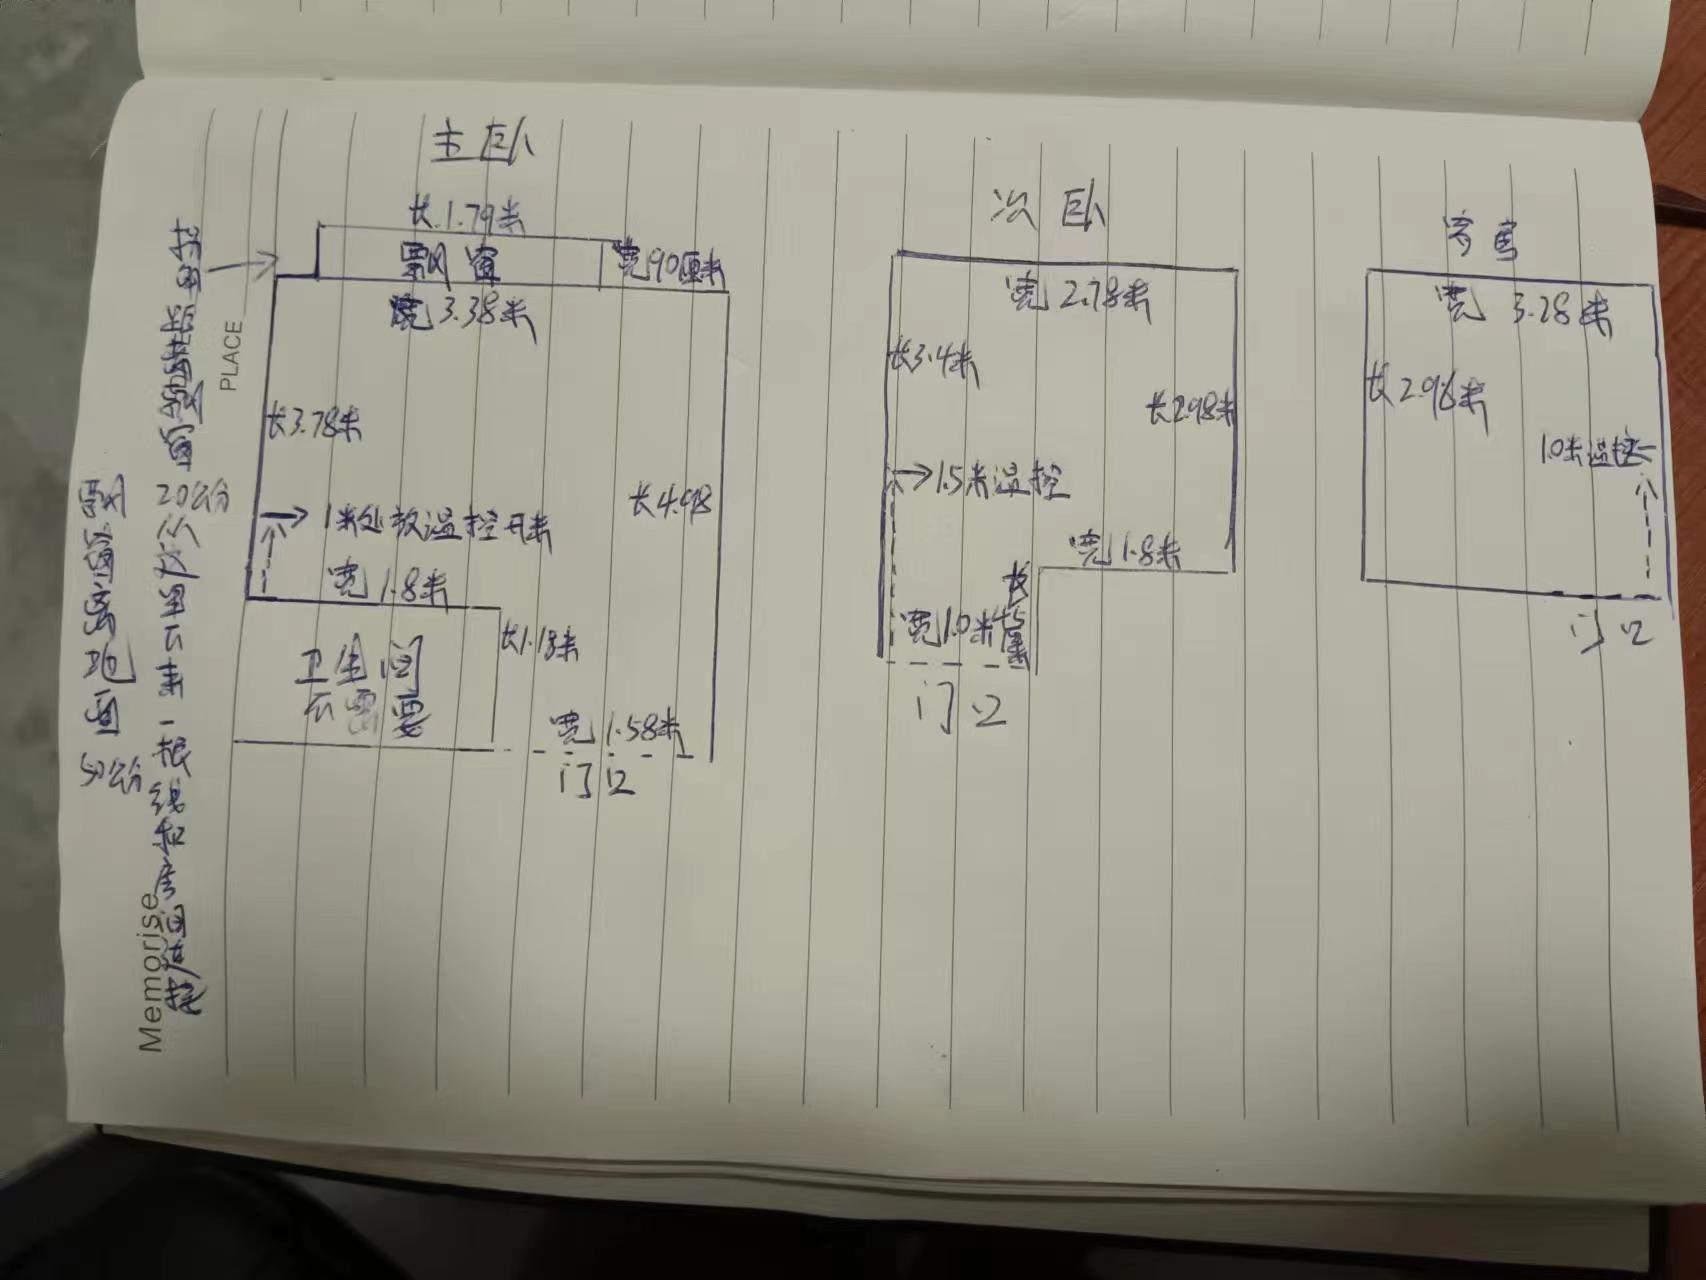 主卧
长1.79米
飘窗
宽90厘米
宽3.38米
长3.78米
长4.98
1米处放温控开关
宽1.8米
长1.18米
卫生间
不需要
宽1.58米
门口
次卧
宽2.78米
长3.4米
长2.98米
1.5米温控
宽1.8米
宽1.0米
门口
客房
宽3.28米
长2.96米
1.0米温控
门口
飘窗离地面
50公分
20公分
一根线
PLACE
Memorise